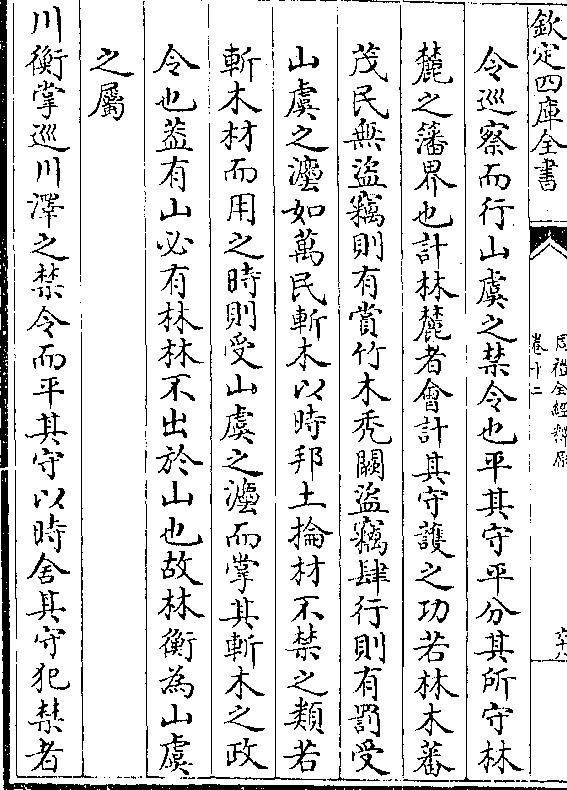 欽定四庫全書
周禮全經釋原
卷十二
令巡察而行山虞之禁令也平其守平分其所守林
麓之藩界也計林麓者會計其守護之功若林木蕃
茂民無盜竊則有賞竹木禿闕盜竊肆行則有罰受
山虞之灋如萬民斬木以時邦工掄材不禁之類若
斬木材而用之時則受山虞之灋而掌其斬木之政
令也葢有山必有林林不出於山也故林衡為山虞
之屬
川衡掌巡川澤之禁令而平其守以時舍其守犯禁者